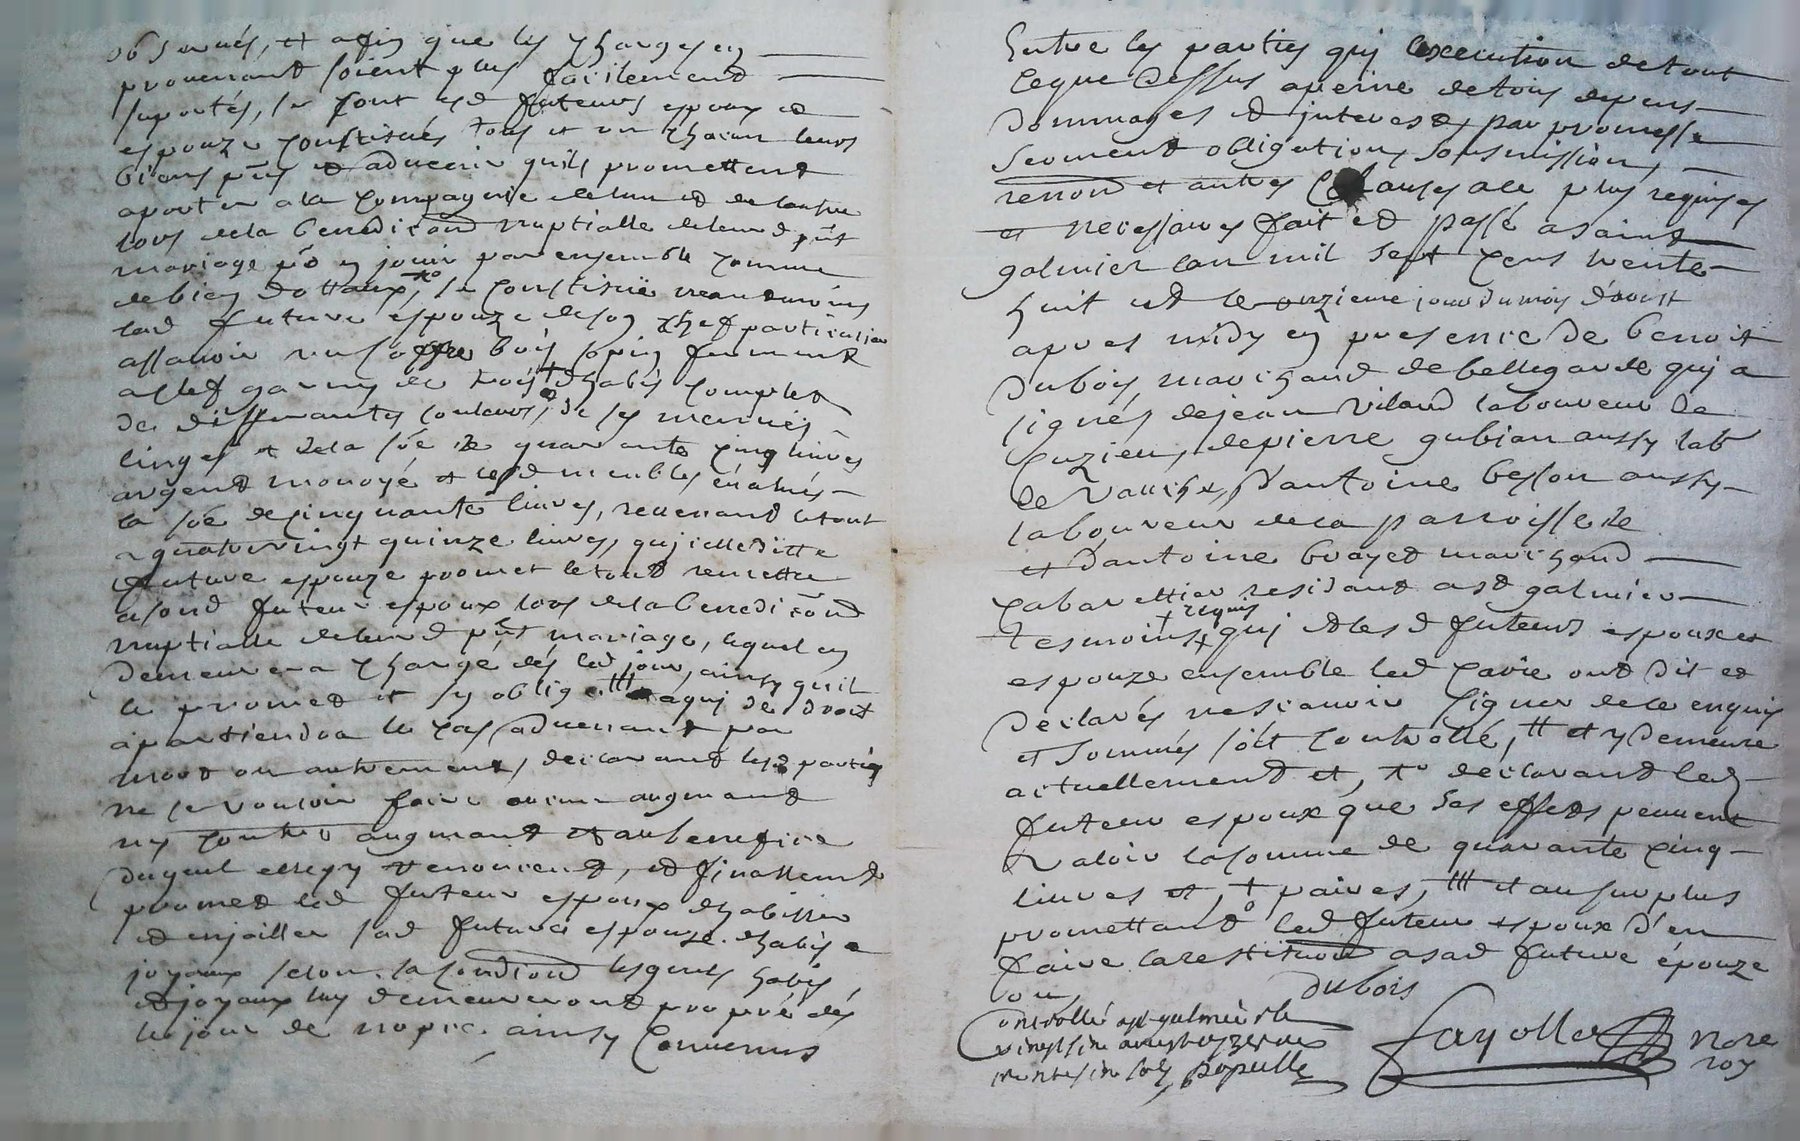 observés, et afin que les charges en
provenant soient plus facilement
suportés, se sont lesd futeurs espoux et
espouze constitués tous et un chacun leurs
biens pnts et advenir quils promettent
aporter a la compagnie de lun et de lautre
lors de la benediction nuptialle de leurd pnt
mariage po en jouir par ensemble comme
de biens dottaux, se constitue neantmoins
lad future espouze de son chef particulier
assavoir un coffre bois sapin fermant
a clef garny de trois habis complet
de differantes couleurs, de ses menues
linges et de la soe de quarante cinq livres
argent monoyé et lesd meubles évalués
la soe de cinquante livres, revenant le tout
a quatrevingt quinze livres, qui icelle ditte
future espouze promet le tout remettre
a sond futeur espoux lors de la benediction
nuptialle de leurd pnt mariage, lequel en
demeurera chargé dés led jour, ainsy quil
le promet et sy oblige a qui de droit
apartiendra le cas advenant par
mort ou autrement, declarant lesd parties
ne se vouloir faire aucun augmant
ny contre augmant et au benefice
duquel elles y renoncent, et finallement
promet led futeur espoux dhabiller
et enjoailler sad future espouze dhabis et
joyaux selon sa condition lesquels habis
et joyaux luy demeureront propre dés
le jour de nopce ainsy convenus
Entre les parties qui lexecution de tout
ce que dessus a peine de tous depens
dommages et interest, par promesse
serment obligations sousmission,
renon et autres clauses a ce plus requises
et necessaires fait et passé a saint
galmier lan mil sept cens trente
huit et le onzieme jour du mois d'aoust
apres midy en presence de benoit
dubois marchand de bellegarde qui a
signés de jean vilard laboureur de
cuzieu, de pierre gubian aussy lab
de vauche, d'antoine besson aussy
laboureur de la parroisse de
et dantoine boayed marchand
cabarettier residant a st galmier
tesmoins requis qui et lesd futeurs espoux et
espouze ensemble led pavie ont dit et
declarés ne scavoir signer de ce enquis
et sommés soit controllé, et y demeure
actuellement et, declarant led
futeur espoux que ses effets peuvent
valoir la somme de quarante cinq
livres et, paires, et au surplus
promettant led futeur espoux d'en
faire la restitution a sad future épouze
dubois
Controllé a st galmier le
vingt six aoust 1738 reçu
trente six sols, populle
fayolle nore
roy